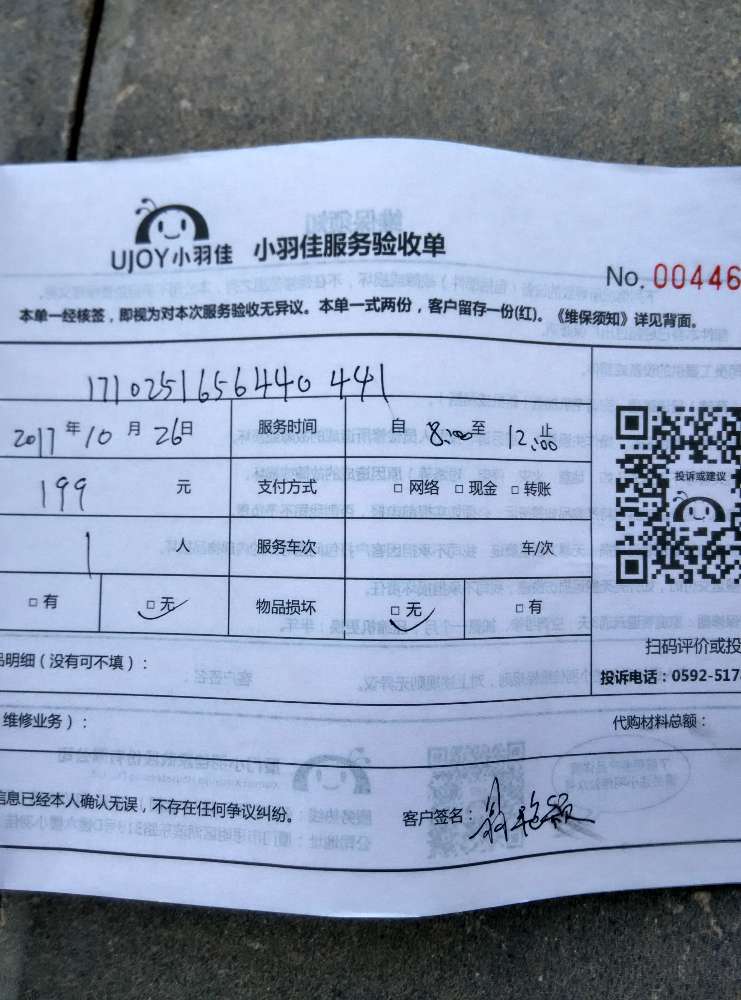 UJOY小羽佳 小羽佳服务验收单
No. 00446
本单一经核签，即视为对本次服务验收无异议。本单一式两份，客户留存一份(红)。《维保须知》详见背面。
1710251656440441
2017年10月26日 服务时间 自8:00至12:00止
投诉或建议
199元 支付方式 □网络 □现金 □转账
1人 服务车次 车/次
□有 □无 物品损坏 □无 □有
扫码评价或投
品明细（没有可不填）：
投诉电话：0592-517
维修业务）：
代购材料总额：
信息已经本人确认无误，不存在任何争议纠纷。
客户签名：